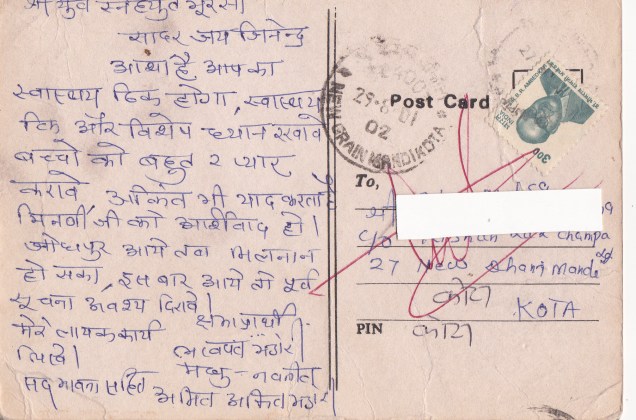 श्री युत स्नेहयुत भूरसा
सादर जय जिनेन्द्र
आशा है, आपका
स्वास्थय ठिक होगा, स्वास्थय
ठिक और विशेष ध्यान रखावे
बच्चो को बहुत २ प्यार
करावे, अंकित भी याद करता है
जी को आर्शिवाद हो।
जोधपुर आये तब मिलना न
हो सका, इस बार आये तो पूर्व
सूचना अवश्य दिरावे।
क्षमाप्रार्थी
मेरे लायक कार्य
लिखे।
भंडारी
मधु - नवनीत
सद् भावना सहित
अमित अंकित भंडारी
NEW GRAIN MANDI KOTA
29-8-01
02
Post Card
300
To,
श्री
C/O Champa
27 New Mandi
कोटा
KOTA
PIN
कोटा